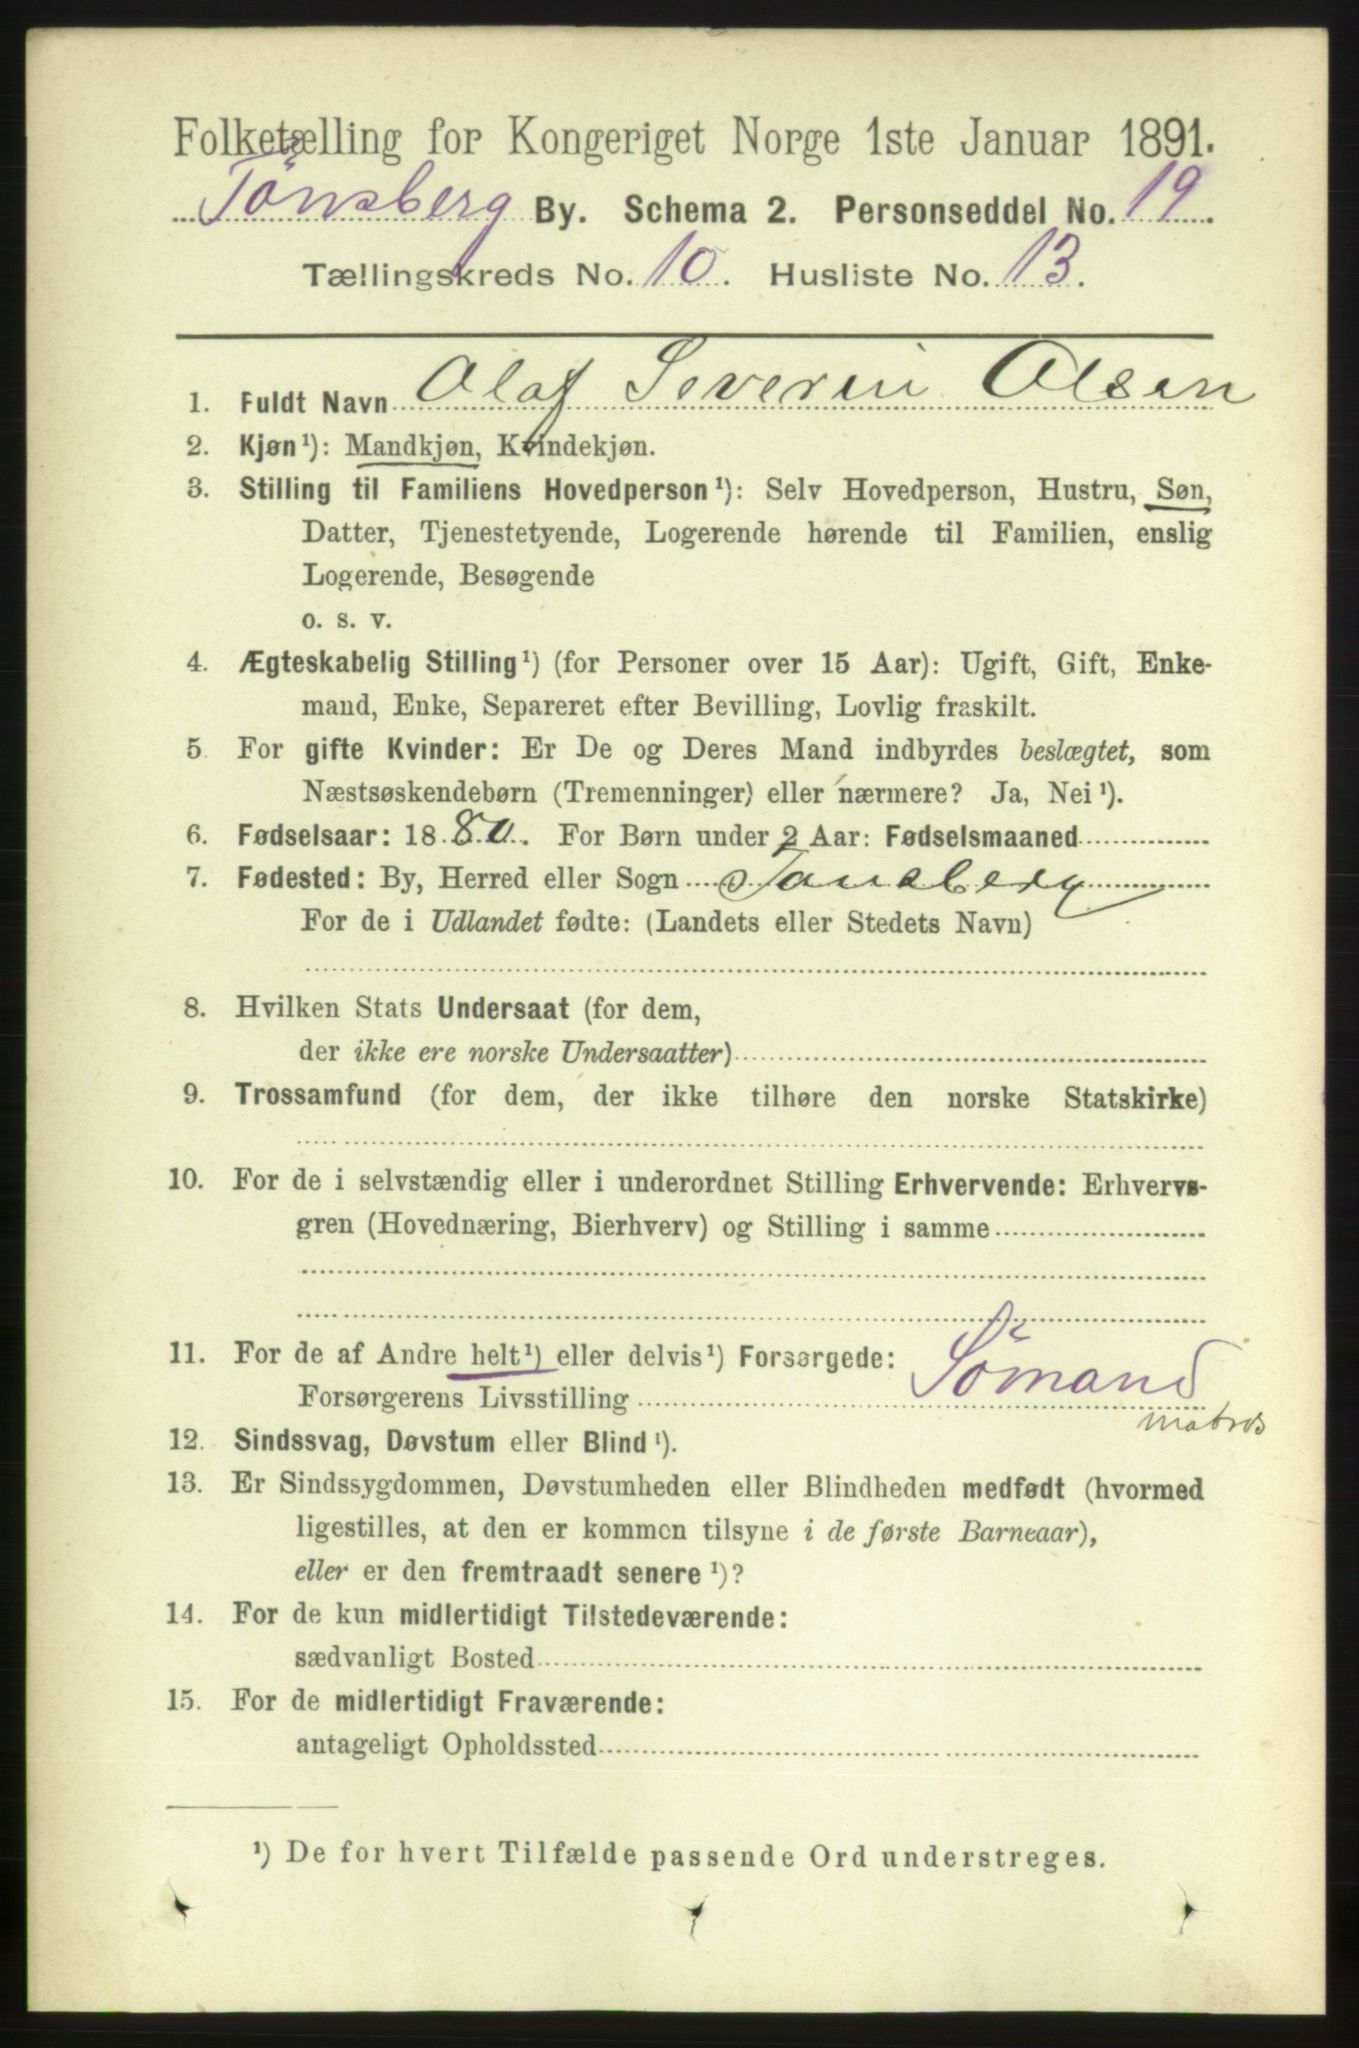 Folketælling for Kongeriget Norge 1ste Januar 1891.
Tönsberg By. Schema 2. Personseddel No. 19.
Tællingskreds No. 10. Husliste No. 13.
1. Fuldt Navn Olaf Severin Olsen
2. Kjøn¹): Mandkjøn, Kvindekjøn.
3. Stilling til Familiens Hovedperson¹): Selv Hovedperson, Hustru, Søn,
Datter, Tjenestetyende, Logerende hørende til Familien, enslig
Logerende, Besøgende
o. s. v.
4. Ægteskabelig Stilling¹) (for Personer over 15 Aar): Ugift, Gift, Enke-
mand, Enke, Separeret efter Bevilling, Lovlig fraskilt.
5. For gifte Kvinder: Er De og Deres Mand indbyrdes beslægtet, som
Næstsøskendebørn (Tremenninger) eller nærmere? Ja, Nei¹).
6. Fødselsaar: 1880. For Børn under 2 Aar: Fødselsmaaned
7. Fødested: By, Herred eller Sogn Tønsberg
For de i Udlandet fødte: (Landets eller Stedets Navn)
8. Hvilken Stats Undersaat (for dem,
der ikke ere norske Undersaatter)
9. Trossamfund (for dem, der ikke tilhøre den norske Statskirke)
10. For de i selvstændig eller i underordnet Stilling Erhvervende: Erhvervs-
gren (Hovednæring, Bierhverv) og Stilling i samme
11. For de af Andre helt¹) eller delvis¹) Forsørgede:
Forsørgerens Livsstilling Sömand
matros
12. Sindssvag, Døvstum eller Blind¹).
13. Er Sindssygdommen, Døvstumheden eller Blindheden medfødt (hvormed
ligestilles, at den er kommen tilsyne i de første Barneaar),
eller er den fremtraadt senere¹)?
14. For de kun midlertidigt Tilstedeværende:
sædvanligt Bosted
15. For de midlertidigt Fraværende:
antageligt Opholdssted
¹) De for hvert Tilfælde passende Ord understreges.